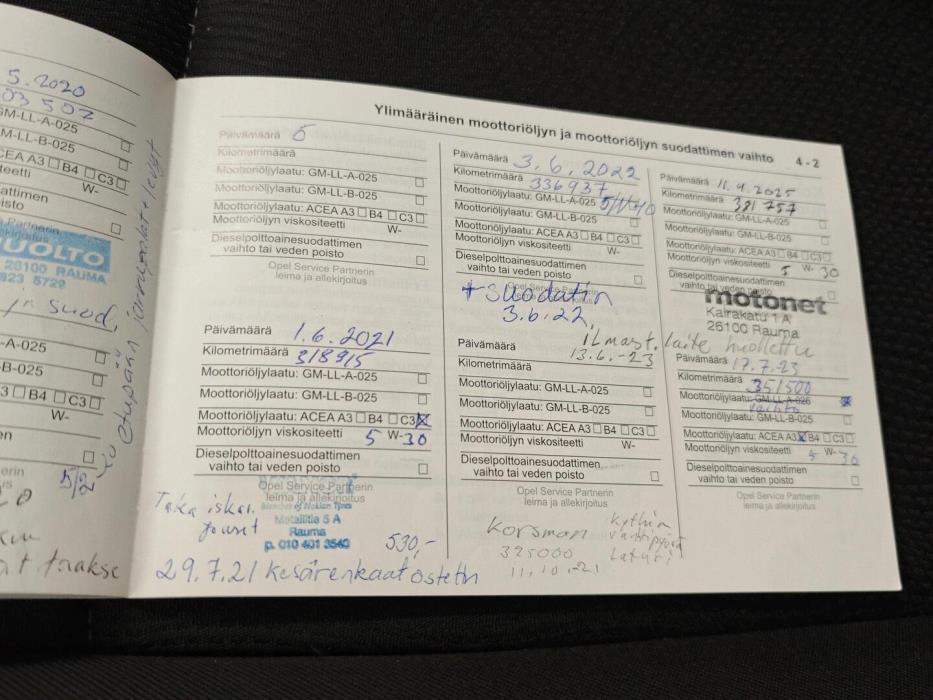 5.2020
03 502
GM-LL-A-025
M-LL-B-025
CEA A3 B4 C3
teetti W-
attimen
isto
Partnerin
ekirjoitus
HUOLTO
26100 RAUMA
823 5729
suod.
etupään
-A-025
B-025
3 B4 C3
W-
en
erin
us
t taakse
Ylimääräinen moottoriöljyn ja moottoriöljyn suodattimen vaihto 4 - 2
Päivämäärä 5
Kilometrimäärä
Moottoriöljylaatu: GM-LL-A-025
Moottoriöljylaatu: GM-LL-B-025
Moottoriöljylaatu: ACEA A3 B4 C3
Moottoriöljyn viskositeetti W-
Dieselpolttoainesuodattimen
vaihto tai veden poisto
Opel Service Partnerin
leima ja allekirjoitus
Päivämäärä 1.6.2021
Kilometrimäärä 318915
Moottoriöljylaatu: GM-LL-A-025
Moottoriöljylaatu: GM-LL-B-025
Moottoriöljylaatu: ACEA A3 B4 C3 X
Moottoriöljyn viskositeetti 5 W-30
Dieselpolttoainesuodattimen
vaihto tai veden poisto
Opel Service Partnerin
leima ja allekirjoitus
Taka iskar.
jouset
Member of Nokian Tyres
Metallitie 5 A
Rauma
p. 010 401 3540
530,-
29.7.21 Kesärenkaat ostettu
Päivämäärä 3.6.2022
Kilometrimäärä 336937
Moottoriöljylaatu: GM-LL-A-025 5/W40
Moottoriöljylaatu: GM-LL-B-025
Moottoriöljylaatu: ACEA A3 B4 C3
Moottoriöljyn viskositeetti W-
Dieselpolttoainesuodattimen
vaihto tai veden poisto
Opel Service Partnerin
leima ja allekirjoitus
+ suodatin
3.6.22.
ilmast. laite huollettu
13.6.-23
Päivämäärä
Kilometrimäärä
Moottoriöljylaatu: GM-LL-A-025
Moottoriöljylaatu: GM-LL-B-025
Moottoriöljylaatu: ACEA A3 B4 C3
Moottoriöljyn viskositeetti W-
Dieselpolttoainesuodattimen
vaihto tai veden poisto
Opel Service Partnerin
leima ja allekirjoitus
Korsman
325000
11.10.-21
Kytkin
vauhtipyörä
Laturi
Päivämäärä 11.4.2025
Kilometrimäärä 381 757
Moottoriöljylaatu: GM-LL-A-025
Moottoriöljylaatu: GM-LL-B-025
Moottoriöljylaatu: ACEA A3 B4 C3
Moottoriöljyn viskositeetti 5 W-30
Dieselpolttoainesuodattimen
vaihto tai veden poisto
motonet
Kairakatu 1 A
26100 Rauma
Päivämäärä 17.7.23
Kilometrimäärä 351500
Moottoriöljylaatu: GM-LL-A-025
vaihto
Moottoriöljylaatu: GM-LL-B-025
Moottoriöljylaatu: ACEA A3 X B4 C3
Moottoriöljyn viskositeetti 5 W-30
Dieselpolttoainesuodattimen
vaihto tai veden poisto
Opel Service Partnerin
leima ja allekirjoitus